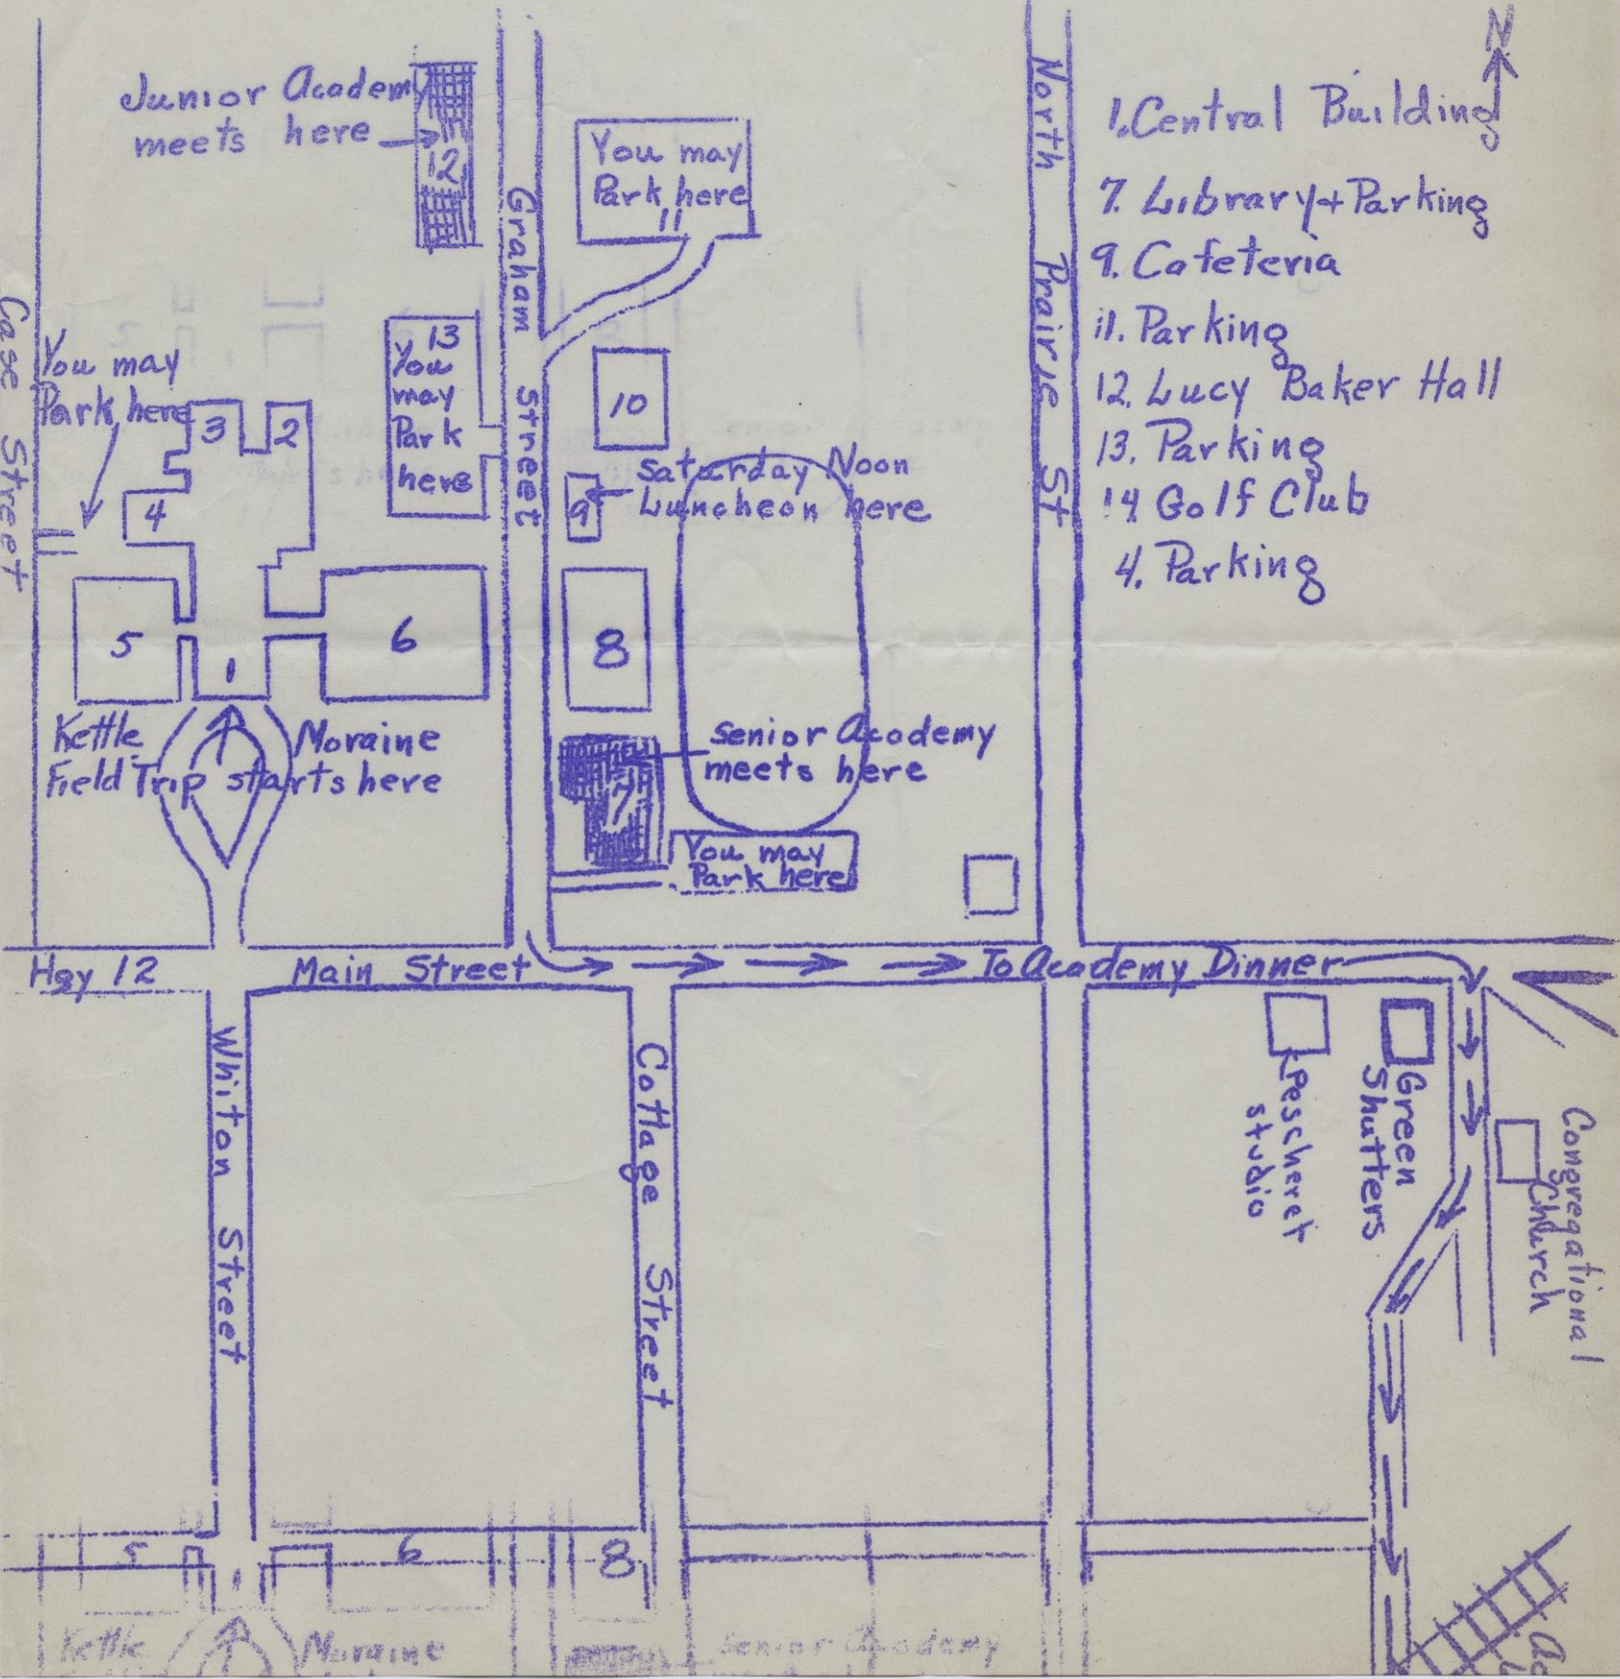 N
Junior Academy
meets here
12
You may
Park here
11
1. Central Building
7. Library + Parking
9. Cafeteria
11. Parking
12. Lucy Baker Hall
13. Parking
14 Golf Club
4. Parking
North Prairie St
Graham Street
Case Street
You may
Park here
13
You
may
Park
here
3
2
4
10
9
Saturday Noon
Luncheon here
5
1
6
8
Kettle Moraine
Field Trip starts here
Senior Academy
meets here
7
You may
Park here
Hgy 12
Main Street
To Academy Dinner
Whiton Street
Cottage Street
Pescheret
studio
Green
Shutters
Congregational
Church
5
1
6
8
Kettle Moraine
Senior Academy